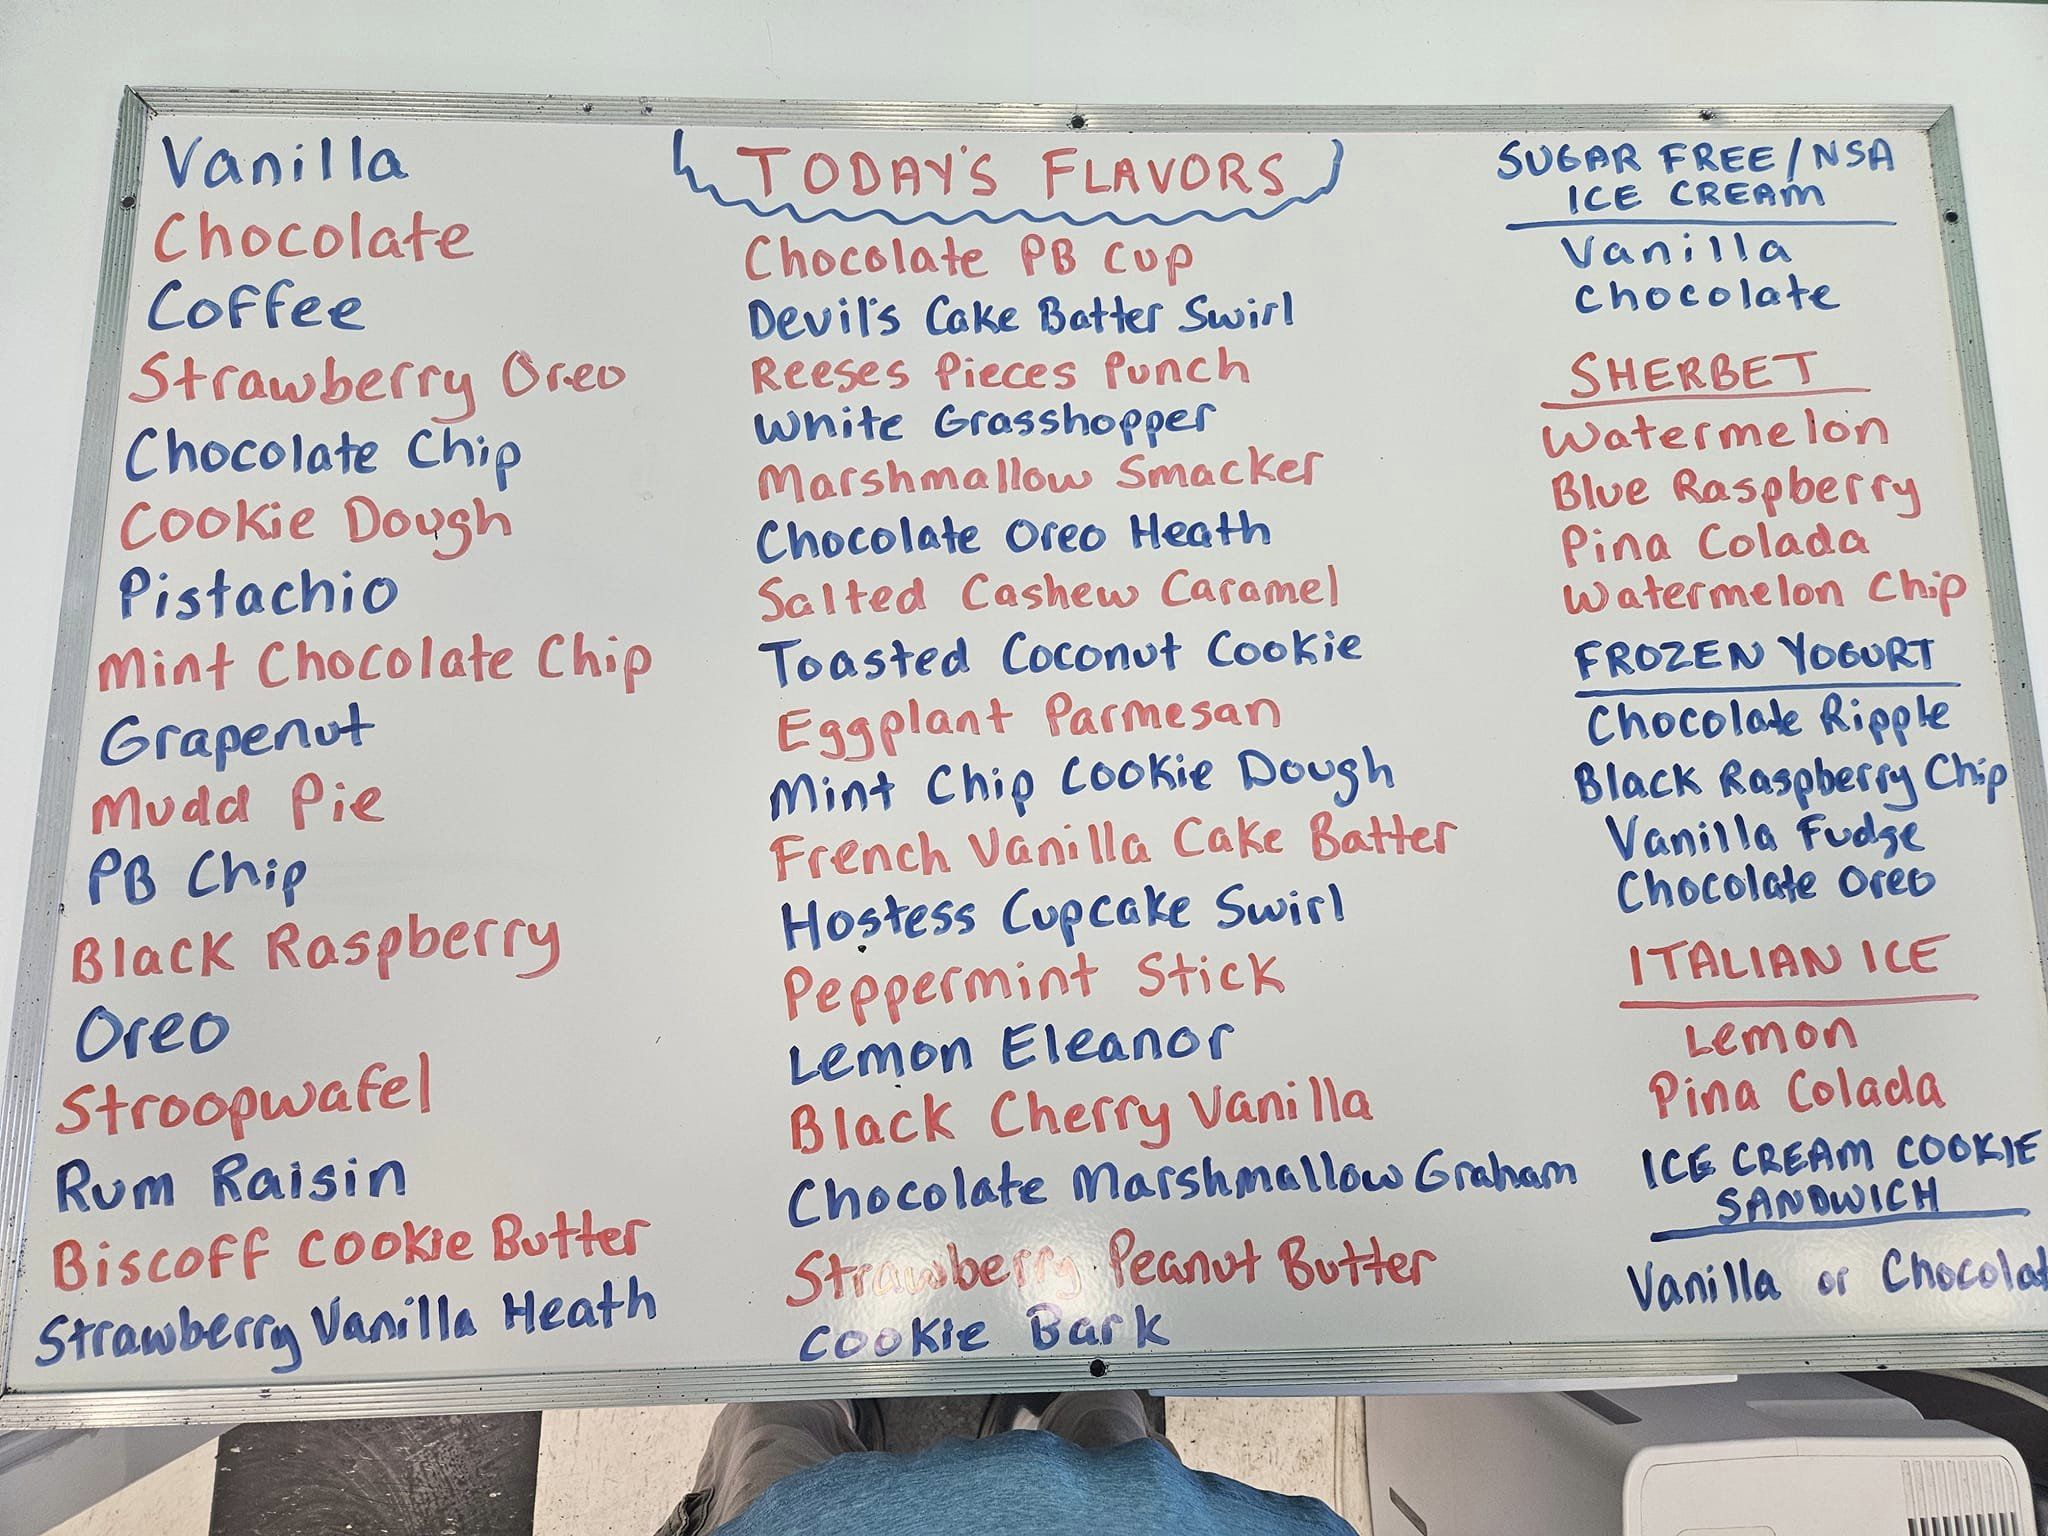 Vanilla
Chocolate
Coffee
Strawberry Oreo
Chocolate Chip
Cookie Dough
Pistachio
Mint Chocolate Chip
Grapenut
Mudd Pie
PB Chip
Black Raspberry
Oreo
Stroopwafel
Rum Raisin
Biscoff Cookie Butter
Strawberry Vanilla Heath
TODAY'S FLAVORS
Chocolate PB Cup
Devil's Cake Batter Swirl
Reeses Pieces Punch
White Grasshopper
Marshmallow Smacker
Chocolate Oreo Heath
Salted Cashew Caramel
Toasted Coconut Cookie
Eggplant Parmesan
Mint Chip Cookie Dough
French Vanilla Cake Batter
Hostess Cupcake Swirl
Peppermint Stick
Lemon Eleanor
Black Cherry Vanilla
Chocolate Marshmallow Graham
Strawberry Peanut Butter
Cookie Bark
SUGAR FREE/NSA
ICE CREAM
Vanilla
Chocolate
SHERBET
Watermelon
Blue Raspberry
Pina Colada
Watermelon Chip
FROZEN YOGURT
Chocolate Ripple
Black Raspberry Chip
Vanilla Fudge
Chocolate Oreo
ITALIAN ICE
Lemon
Pina Colada
ICE CREAM COOKIE
SANDWICH
Vanilla or Chocolat